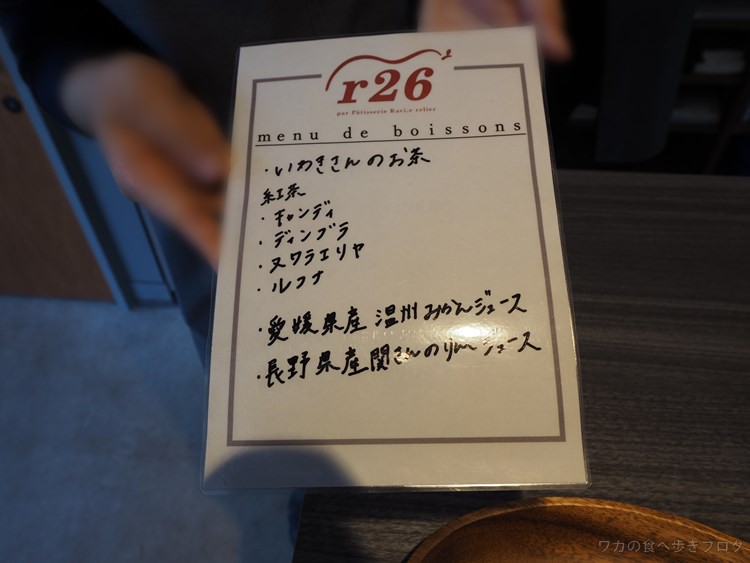 r26
par Pâtisserie Ravi,e relier
menu de boissons
・いわきさんのお茶
紅茶
・キャンディ
・ディンブラ
・ヌワラエリヤ
・ルフナ
・愛媛県産 温州みかんジュース
・長野県産関さんのりんごジュース
ワカの食べ歩きブログ